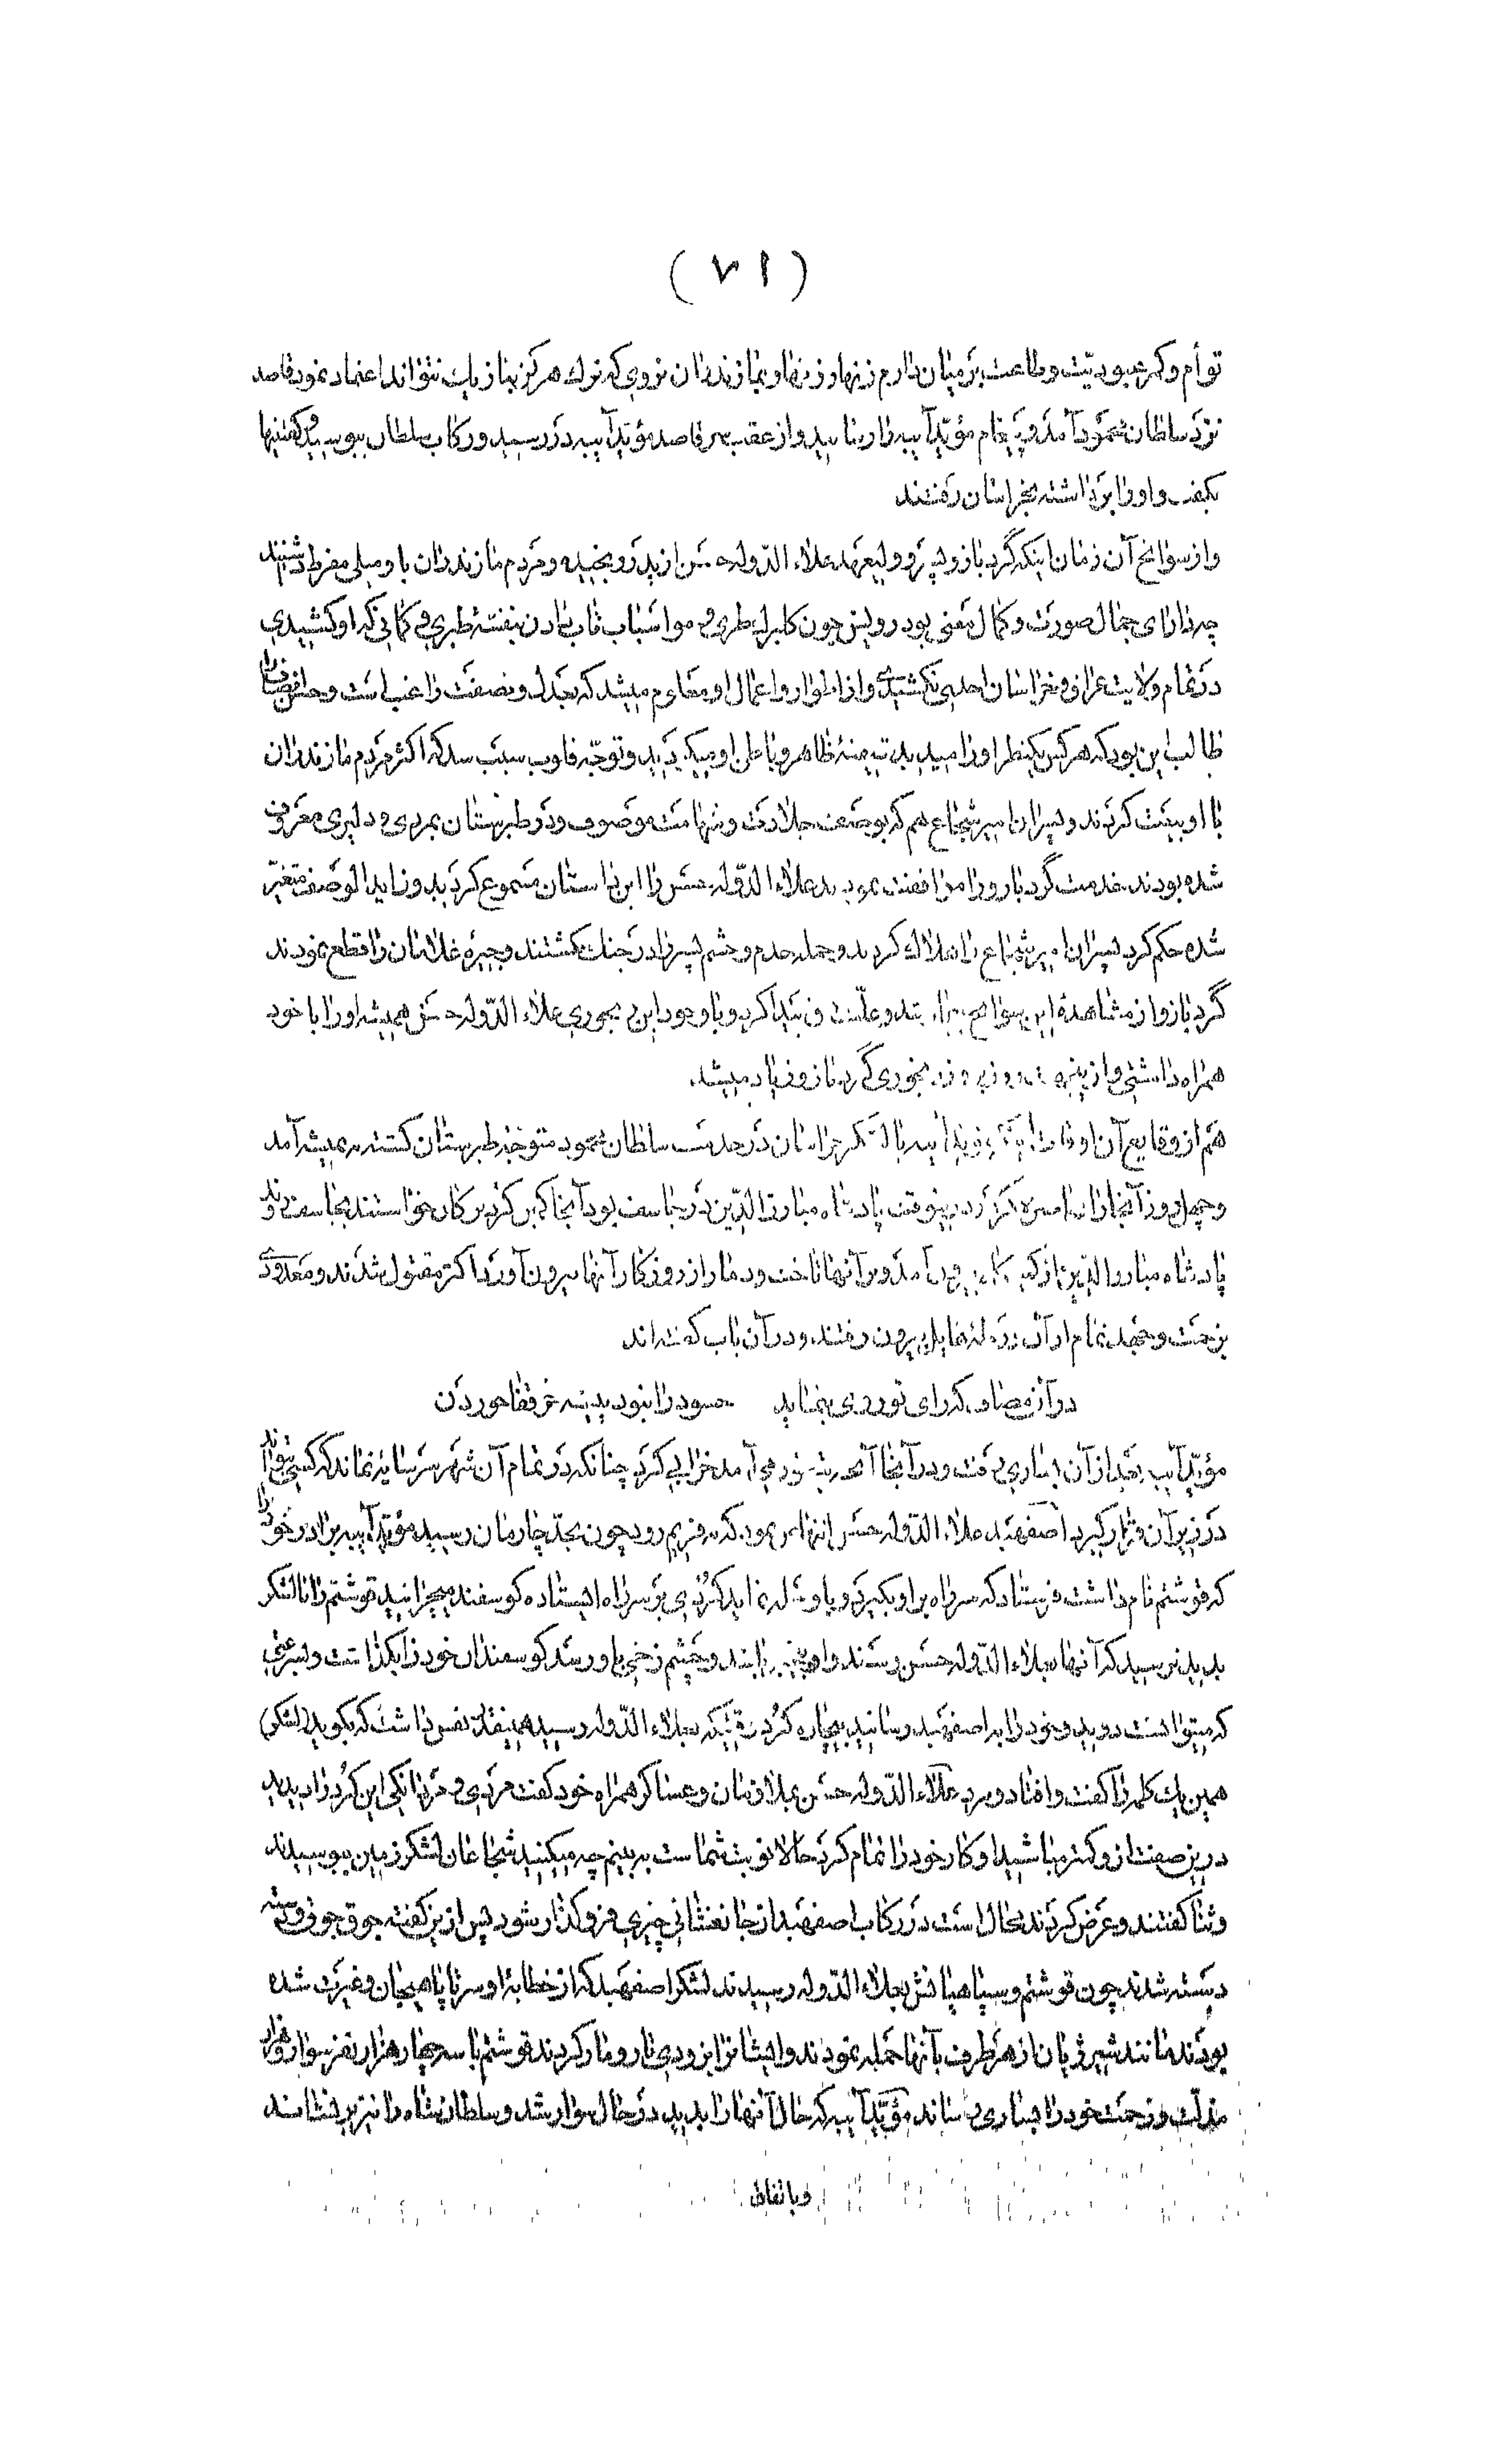 ( ۷۱ )
توأم و کمر عبودیّت و طاعت بر میان دارم زنهار و زنهار بمازندران نروی که ترك هرگز بتازیك نتواند اعتماد نمود قاصد
نزد سلطان محمود آمد و پیغام مؤیّد آیبه را رسانید و از عقب سر قاصد مؤیّد آیبه در رسید و رکاب سلطان ببوسید و گفتنیها
بگفت و او را برداشته بخراسان رفتند
و از سوانح آن زمان اینکه گرد بازو پسر و ولیعهد علاء الدّوله حسن از پدر رنجیده و مردم مازندران باو میلی مفرط داشتند
چه دارای جمال صورت و کمال معنی بود رویش چون گلبرگ طری و مو
در تمام ولایت عراق و خراسان احدی نکشیدی و از اطوار و اعمال او معلوم میشد که بعدل و نصفت راغب است و
طالب این بود که هر کس یکنظر او را میدید بتهمتهٔ ظاهر و باطن او میگردید و توجّه قلوب سبب شد که اکثر مردم مازندران
با او بیعت کردند و پسران امیر شجاع هم که بوصف جلادت و شهامت موصوف و در طبرستان بمردی و دلیری معروف
شده بودند خدمت گرد بازو را موافقت نمودند علاء الدّوله حسن را این داستان مسموع گردید و زاید الوصف متغیّر
شده حکم کرد پسران امیر شجاع را هلاك کردند و جمله خدم و حشم پسر را در جنك بکشتند و جیرهٔ غلامان را قطع نمودند
گرد بازو از مشاهدهٔ این سوانح بیمار شد و علّت دق پیدا کرد و با وجود این رنجوری علاء الدّوله حسن همیشه او را با خود
همراه داشتی و از اینجهت روز بروز رنجوری گرد بازو زیاد میشد
هم از وقایع آن اوقات اینکه مؤیّد آیبه با لشکر خراسان در خدمت سلطان محمود متوجّه طبرستان گشته بتمیشه آمد
و چهل روز آنجا را محاصره کرد درینوقت پادشاه مبارز الدّین در جناسف بود آنجا که بر گردبرکار خواستند بجناسف روند
پادشاه مبارز الدّین از کمینگاه بیرون آمد و بر آنها تاخت و دمار از روزگار آنها بیرون آورد اکثر مقتول شدند و معدودی
بزحمت و جهد تمام از آن ورطهٔ هایل بیرون رفتند و در آن باب گفته‌اند
در آن مصاف که رای تو روی بنماید حسود را نبود پیشه جز قفا خوردن
مؤیّد آیبه بعد از آن بساری رفت و در آنجا آنچه بتصوّر می‌آمد خرابی کرد چنانکه در تمام آن شهر سر سایهٔ نماند که کسی بتواند
در زیر آن قرار گیرد اصفهبد علاء الدّوله حسن انتهاز نمود که بفریم رود چون بحدّ چارمان رسید مؤیّد آیبه برادر خود را
که قوشتم نام داشت فرستاد که سر راه بر او بگیرد و باو حمله نماید کُردی بر سر راه ایستاده گوسفند میچرانید قوشتم را با لشکر
بدید بترسید که آنها بعلاء الدّوله حسن رسند و او بیخبر باشد و چشم زخمی باو رسد گوسفندان خود را بگذاشت و بسرعتی
که میتوانست دوید و خود را به اصفهبد رسانید بیچاره کُرد وقتیکه بعلاء الدّوله رسید همینقدر نفس داشت که بگوید (لشکر)
همین یك کلمه را گفت و افتاد و مرد علاء الدّوله حسن بملازمان و عساکر همراه خود گفت مردی و مردانگی این کُرد را دیدید
درین صفت از و کمتر مباشید او کار خود را تمام کرد حالا نوبت شماست به بینم چه میکنید شجاعان لشکر زمین ببوسیدند
و ثنا گفتند و عرض کردند محال است در رکاب اصفهبد از جانفشانی چیزی فروگذار شود پس ازین گفته جوق جوق و دسته
دسته شدند چون قوشتم و سپاهیانش بعلاء الدّوله رسیدند لشکر اصفهبد که از خطابهٔ او سر تا پا هیجان و غیرت شده
بودند مانند شیر ژیان از هر طرف بآنها حمله نمودند و ایشانرا بزودی تار و مار کردند قوشتم با سه چهار هزار نفر سوار و هزار
مذلّت و زحمت خود را بساری رساند مؤیّد آیبه که حال آنها را بدید در حال سوار شد و سلطان شاه را نیز برنشاند
و باتفاق